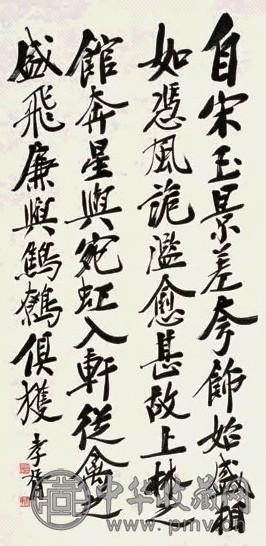 自宋玉景差夸飾始盛相
如憑風詭濫愈甚故上林之
館奔星與宛虹入軒從禽之
盛飛廉與鷦鷯俱獲
中华收藏网
www.pmv